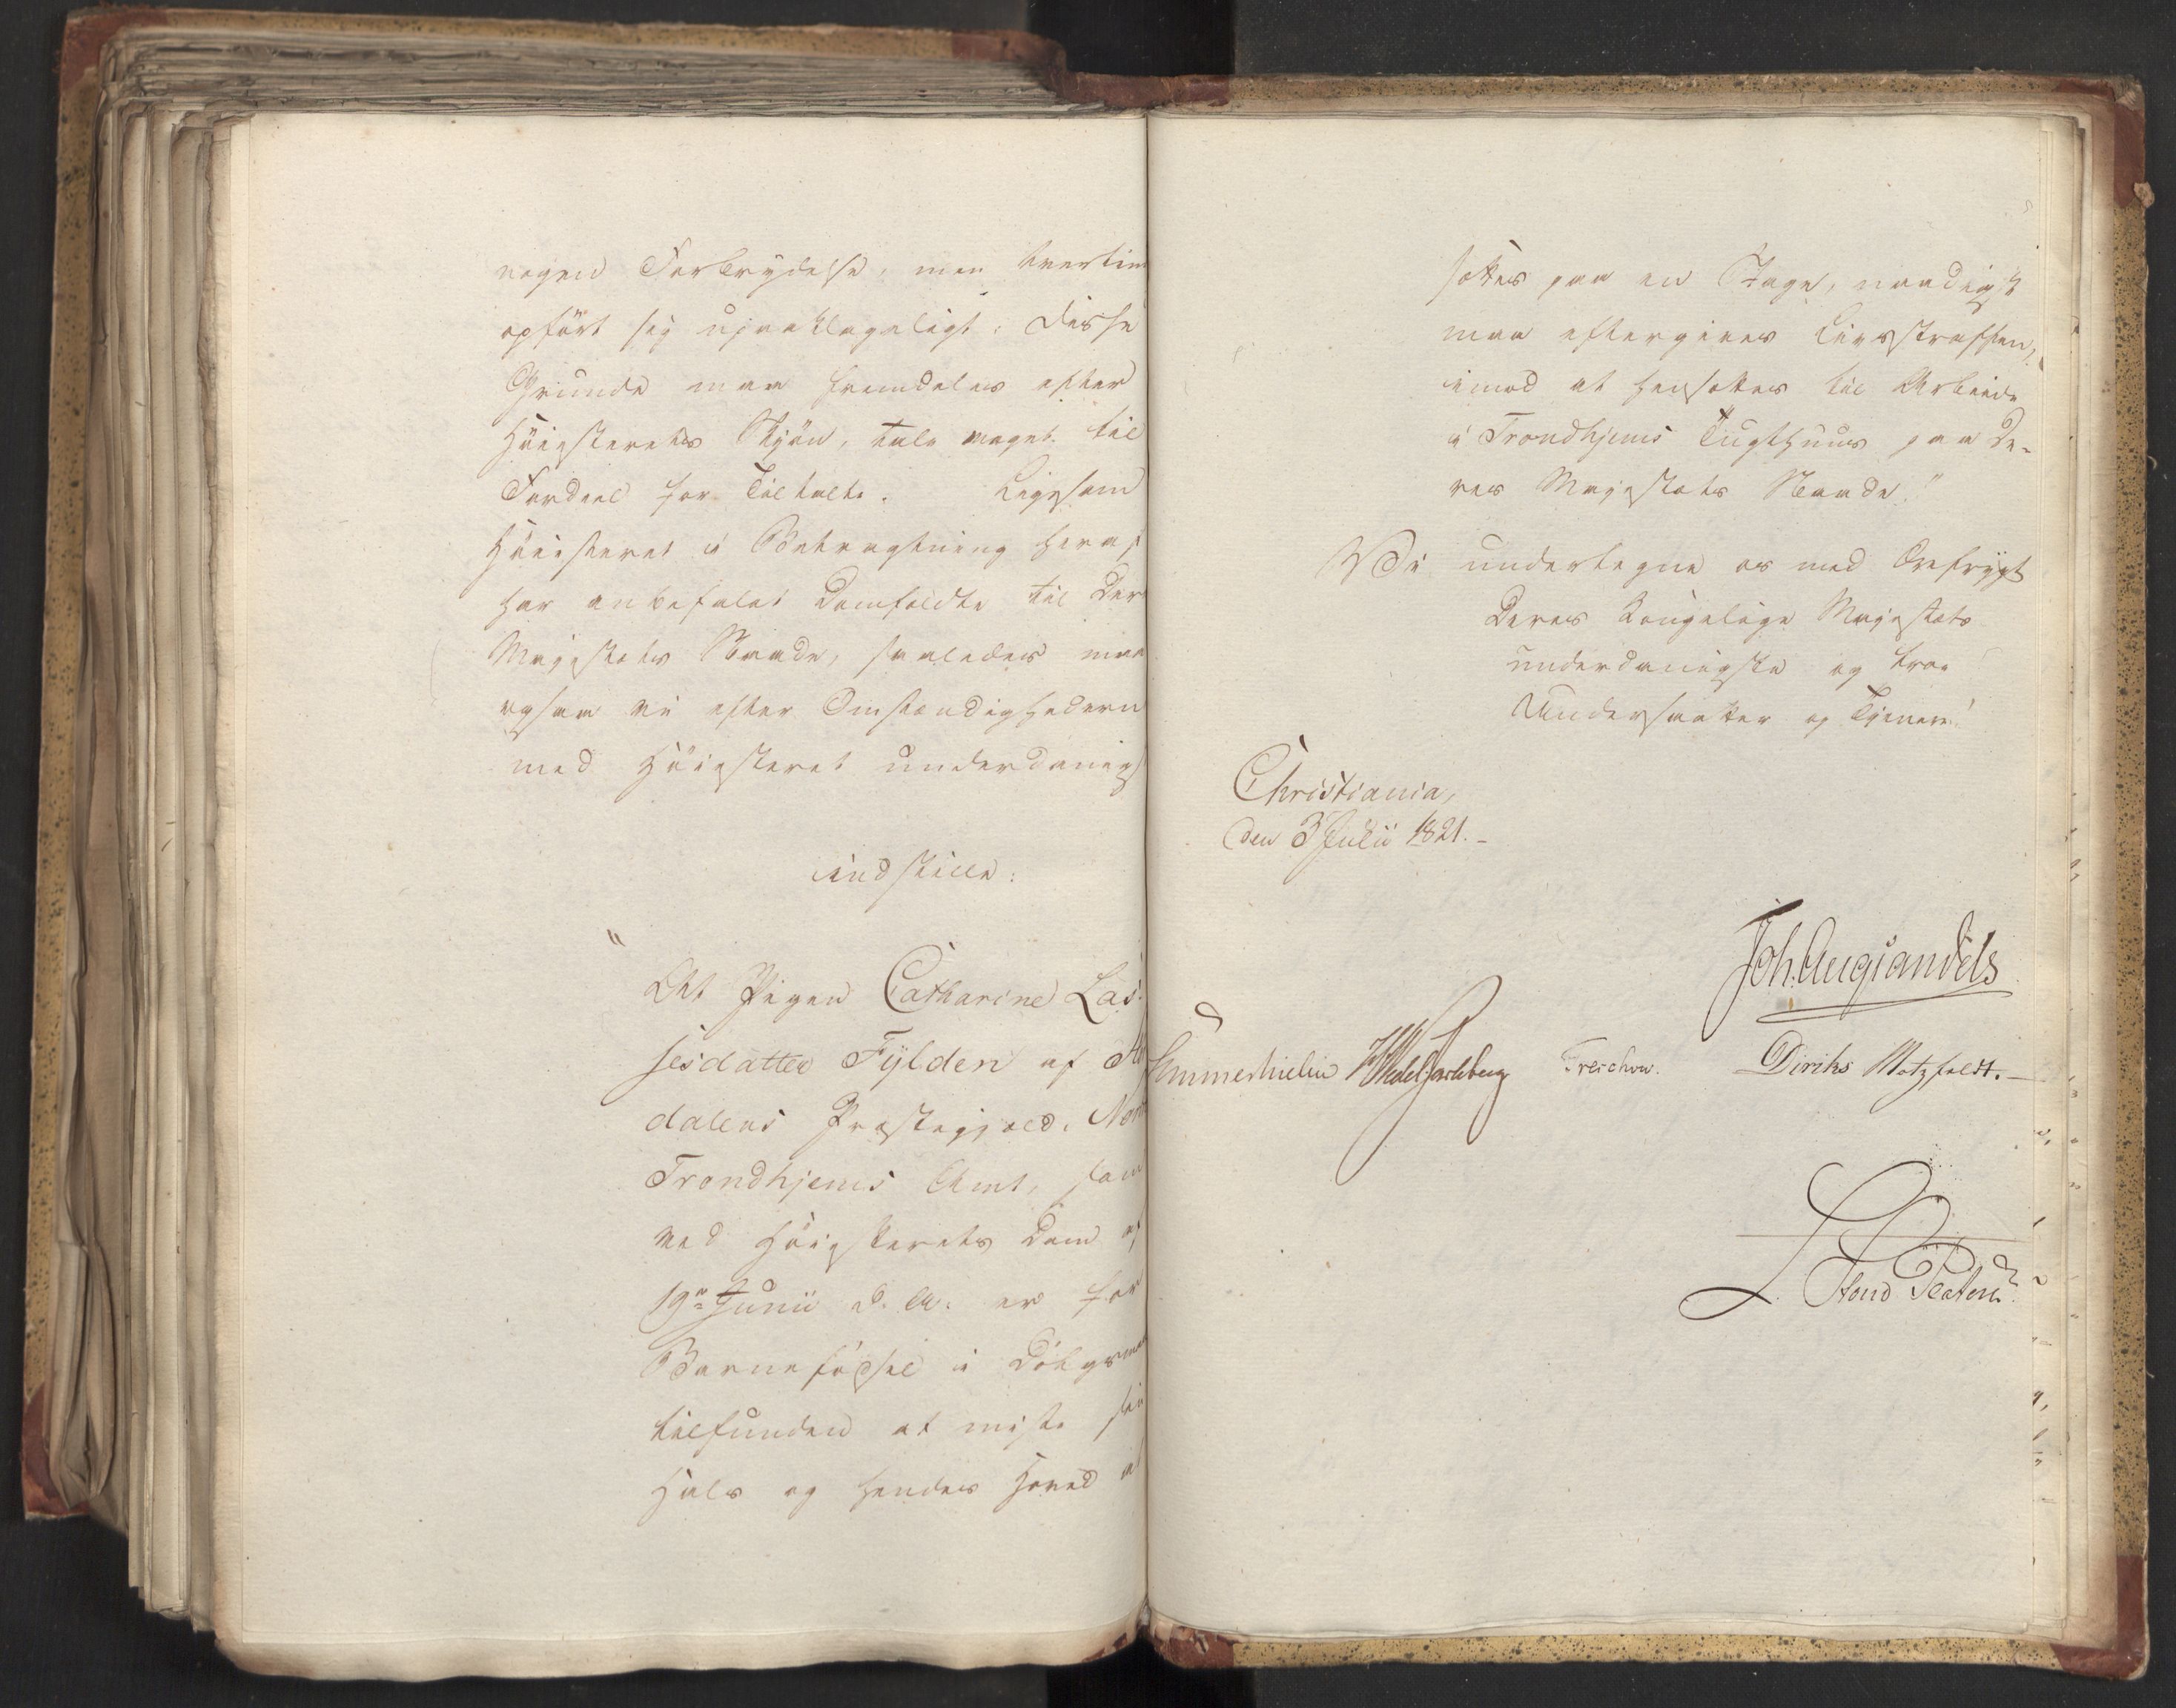 nogen Forbrydelse, men tvertim
opført sig upaaklageligt. Disse
Grunde maa fremdeles efter
Høiesterets Skjøn, tale meget til
Fordeel for Tiltalte. Ligesom
Høiesteret i Betragtning heraf
har anbefalet Domfældte til Der
Majestæts Naade, saaledes maa
ogsaa vi efter Omstændighedern
med Høiesteret underdanigs
indstille:
"At Pigen Catharine Las-
sesdatter Fylden af
dalens Præstegjæld, Nor
Trondhjems Amt, som
ved Høiesterets Dom af
19de Junii d. A. er for
Barnefødsel i Dølgsmaa
tilfunden at miste sin
Hals og hendes Hoved at
sættes paa en Stage, naadigst
maa eftergives Livsstraffen,
imod at hensættes til Arbeide
i Trondhjems Tugthuus paa De-
res Majestæts Naade."
Vi undertegne os med Ærefrygt
Deres Kongelige Majestæts
underdanigste og troe
Undersaatter og Tjenere!
Christiania,
den 3 Julii 1821.-
Joh. Aug. Sandels
Sommerhielm HWedelJarlsberg Treschow. Diriks Motzfeldt.